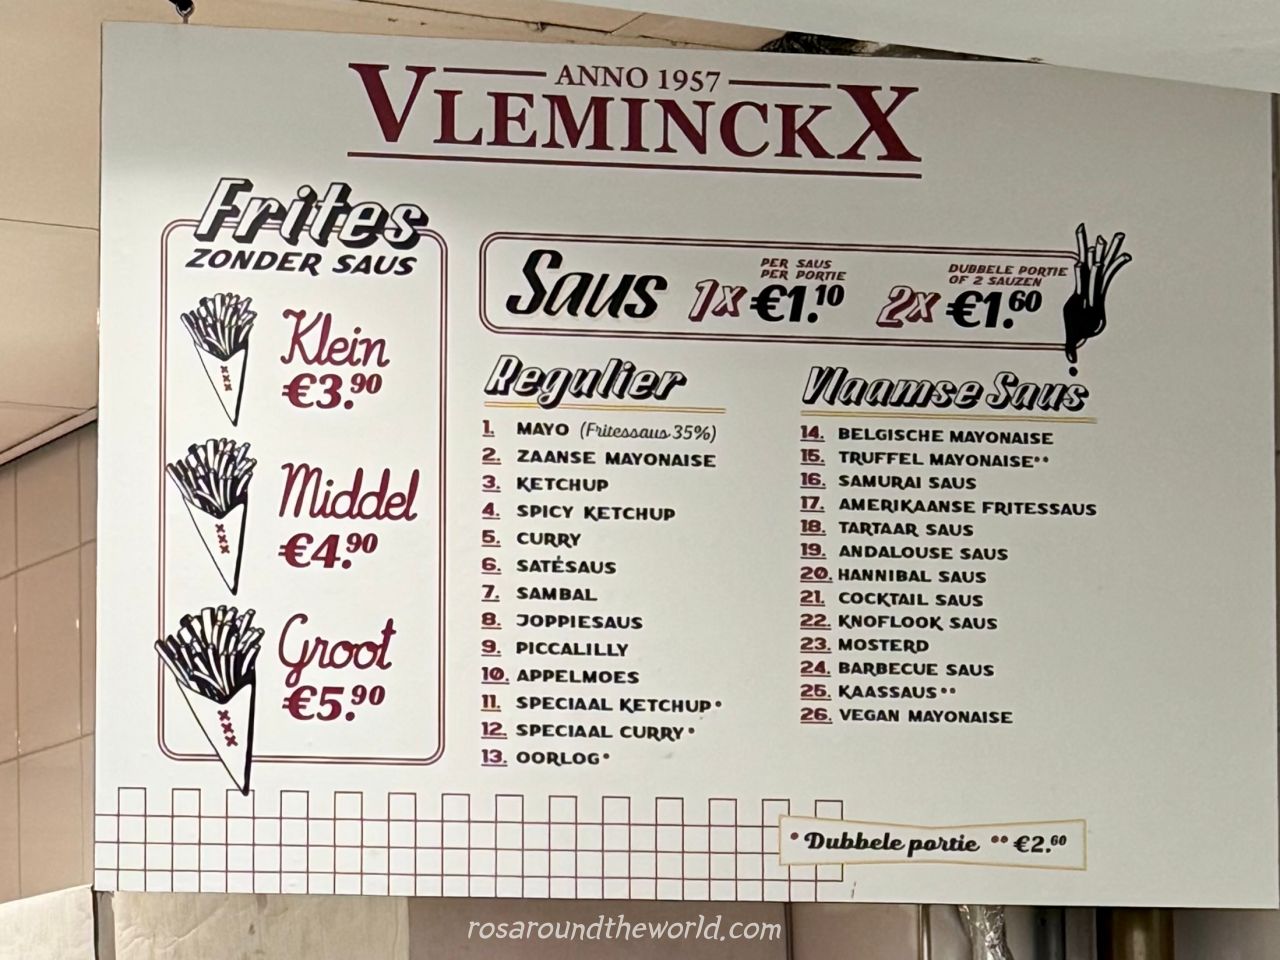 ANNO 1957
VLEMINCKX
Frites
ZONDER SAUS
Klein
€3.90
Middel
€4.90
Groot
€5.90
XXX
XXX
XXX
Saus
1x
PER SAUS
PER PORTIE
€1.10
2x
DUBBELE PORTIE
OF 2 SAUZEN
€1.60
Regulier
1. MAYO (Fritessaus 35%)
2. ZAANSE MAYONAISE
3. KETCHUP
4. SPICY KETCHUP
5. CURRY
6. SATÉSAUS
7. SAMBAL
8. JOPPIESAUS
9. PICCALILLY
10. APPELMOES
11. SPECIAAL KETCHUP*
12. SPECIAAL CURRY*
13. OORLOG*
Vlaamse Saus
14. BELGISCHE MAYONAISE
15. TRUFFEL MAYONAISE**
16. SAMURAI SAUS
17. AMERIKAANSE FRITESSAUS
18. TARTAAR SAUS
19. ANDALOUSE SAUS
20. HANNIBAL SAUS
21. COCKTAIL SAUS
22. KNOFLOOK SAUS
23. MOSTERD
24. BARBECUE SAUS
25. KAASSAUS**
26. VEGAN MAYONAISE
* Dubbele portie ** €2.60
rosaroundtheworld.com